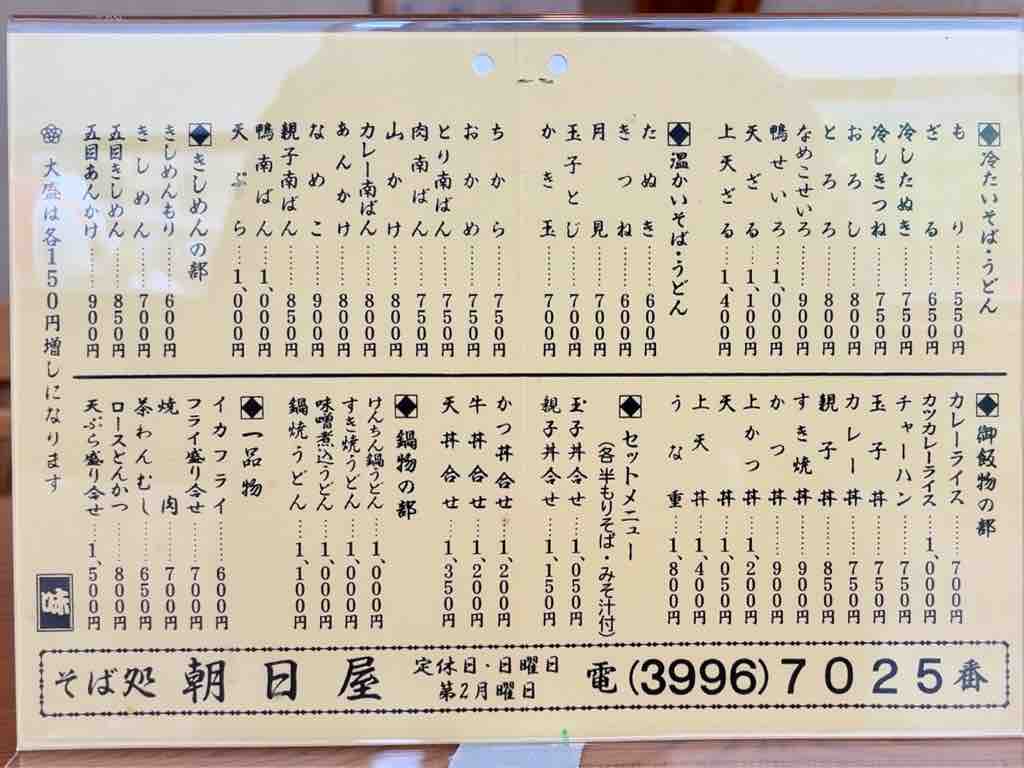 ◆冷たいそば・うどん
もり……550円
ざる……650円
冷したぬき……750円
冷しきつね……750円
おろし……800円
とろろ……800円
なめこせいろ……900円
鴨せいろ……1,000円
天ざる……1,100円
上天ざる……1,400円
◆温かいそば・うどん
たぬき……600円
きつね……600円
月見……700円
玉子とじ……700円
かき玉……700円
ちから……750円
おかめ……750円
とり南ばん……750円
肉南ばん……750円
山かけ……800円
カレー南ばん……800円
あんかけ……800円
なめこ……900円
親子南ばん……850円
鴨南ばん……1,000円
天ぷら……1,000円
◆きしめんの部
きしめんもり……600円
きしめん……700円
五目きしめん……850円
五目あんかけ……900円
大盛は各150円増しになります
◆御飯物の部
カレーライス……700円
カツカレーライス……1,000円
チャーハン……750円
玉子丼……750円
カレー丼……750円
親子丼……850円
すき焼丼……900円
かつ丼……900円
上かつ丼……1,200円
天丼……1,050円
上天丼……1,400円
うな重……1,800円
◆セットメニュー
(各半もりそば・みそ汁付)
玉子丼合せ……1,050円
親子丼合せ……1,150円
かつ丼合せ……1,200円
牛丼合せ……1,200円
天丼合せ……1,350円
◆鍋物の部
けんちん鍋うどん……1,000円
すき焼うどん……1,000円
味噌煮込うどん……1,000円
鍋焼うどん……1,100円
◆一品物
イカフライ……600円
フライ盛り合せ……700円
焼肉……700円
茶わんむし……650円
ロースとんかつ……800円
天ぷら盛り合せ……1,500円
味
そば処 朝日屋
定休日・日曜日
第2月曜日
電(3996)7025番